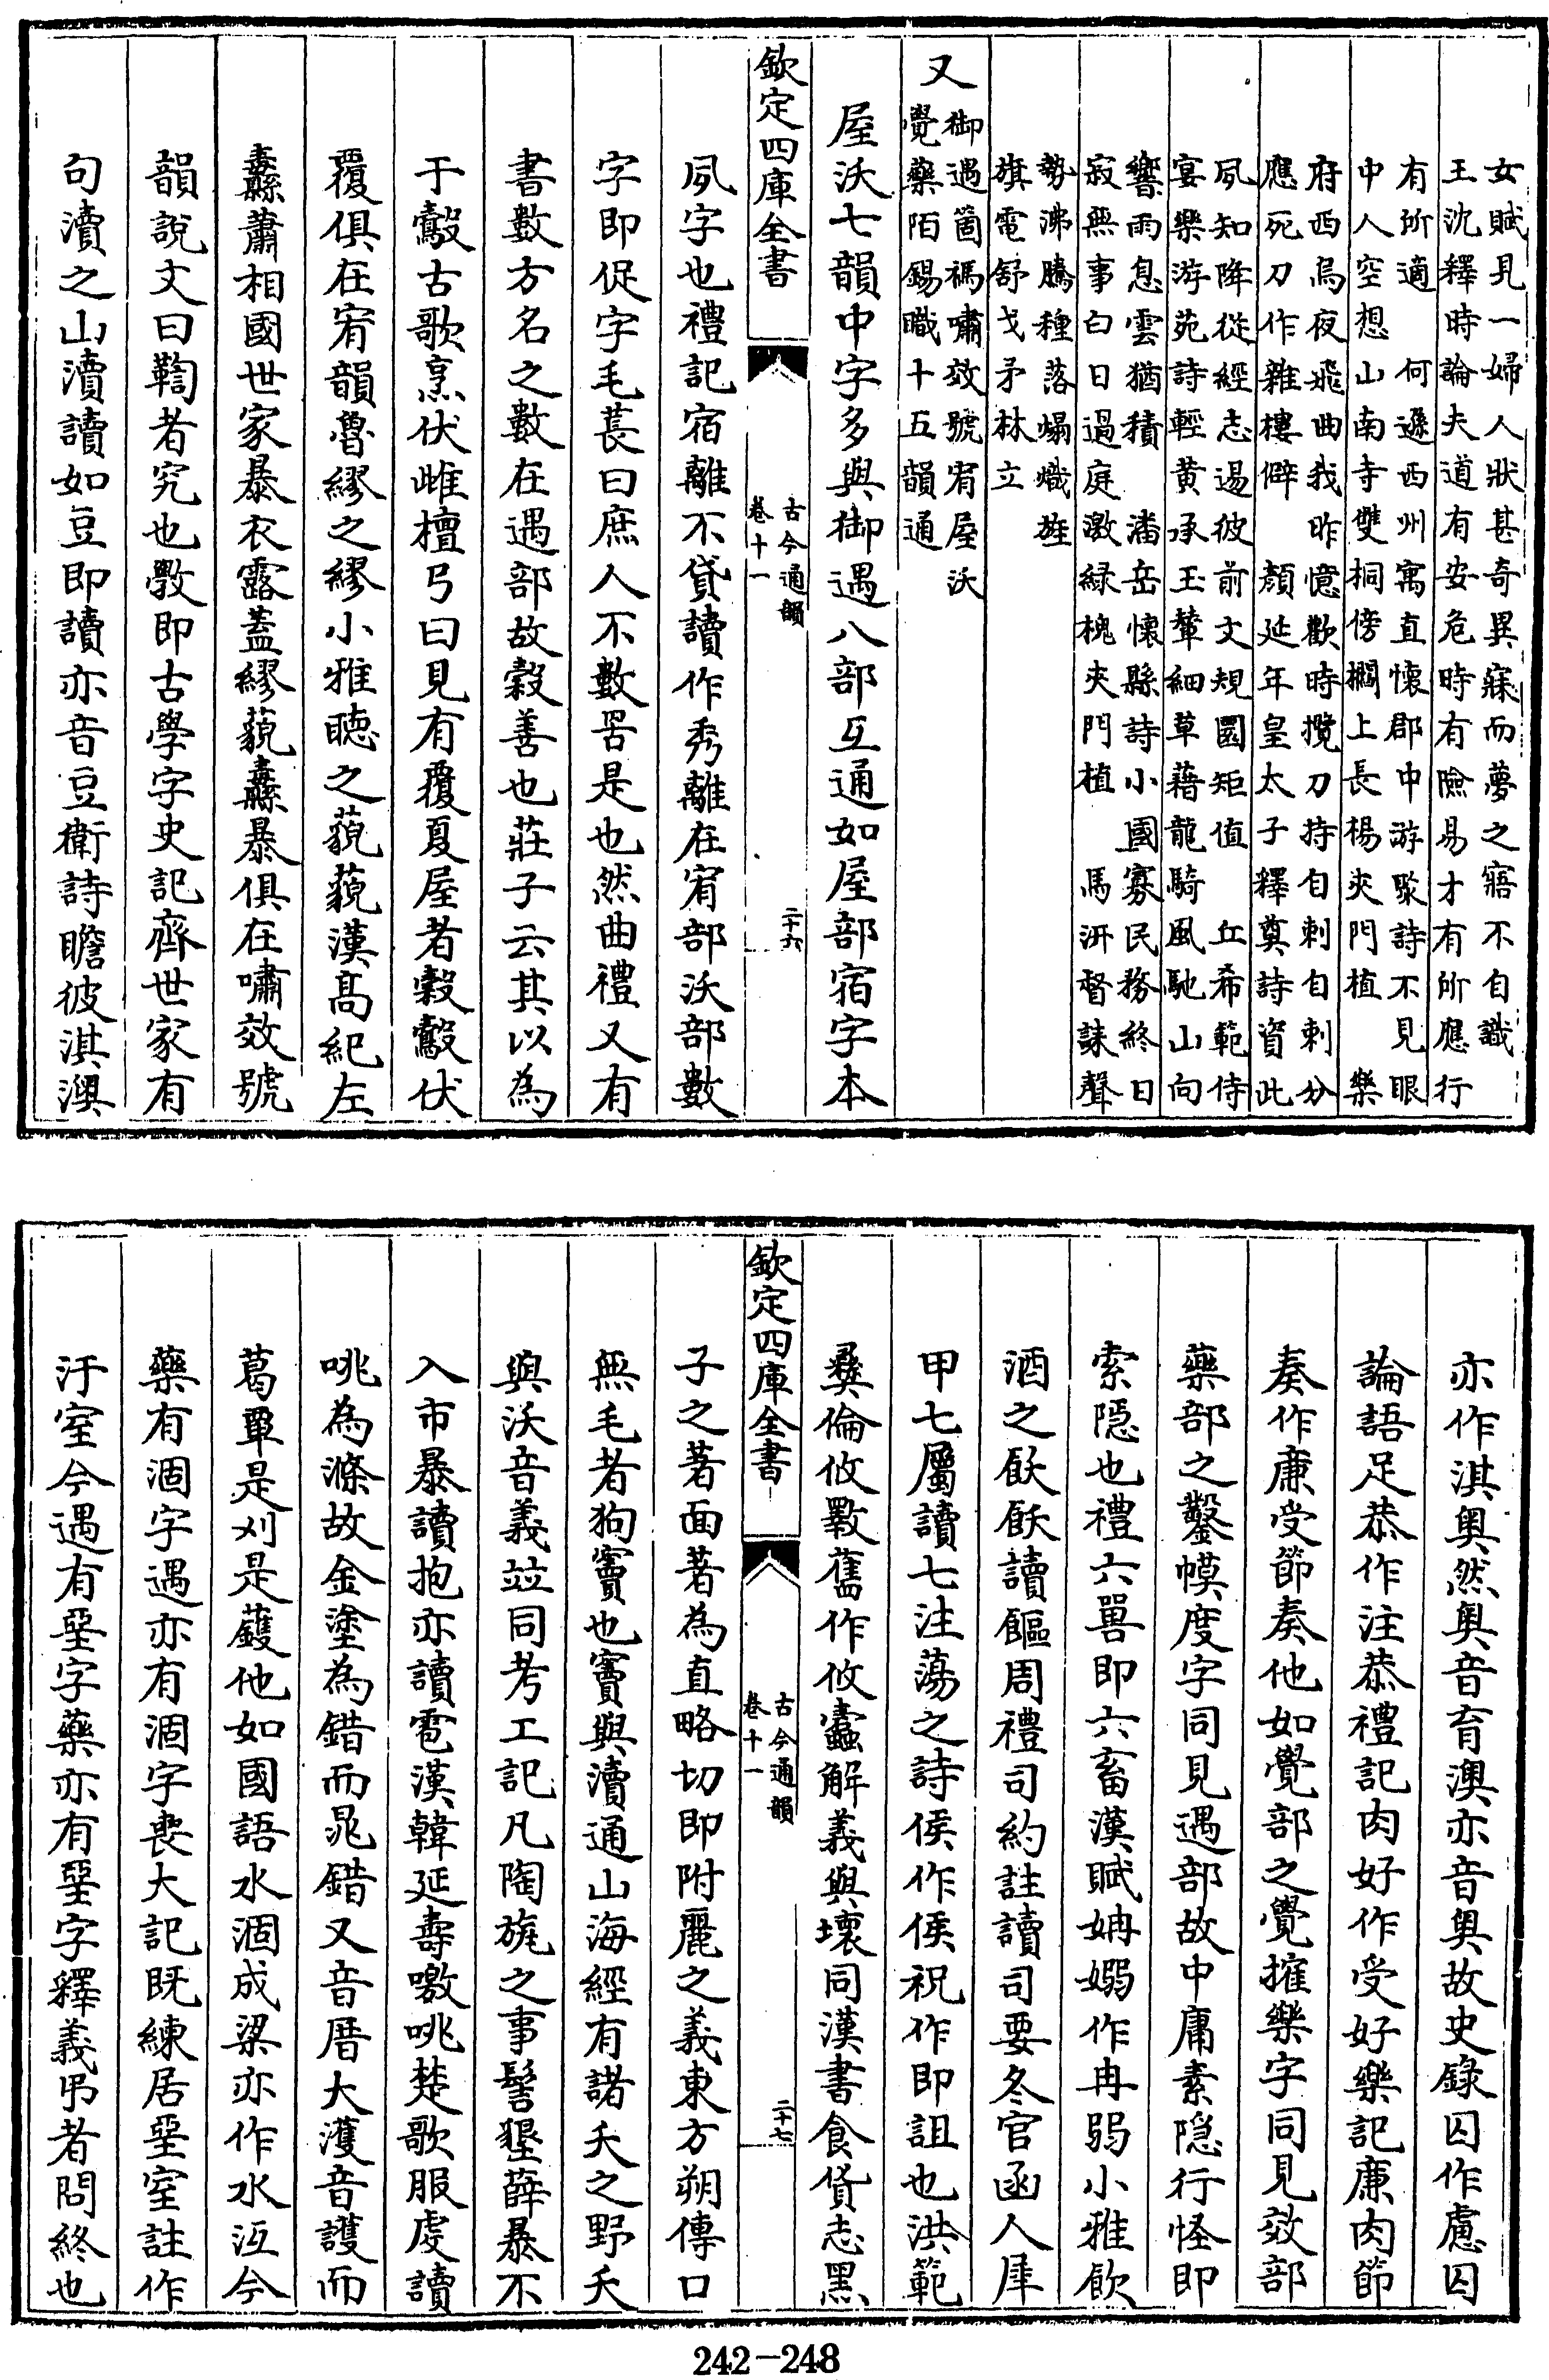 女賦見一婦人狀甚奇異寐而夢之寤不自識
王沈釋時論夫道有安危時有險易才有所應行
有所適　何遜西州寓直懷郡中游聚詩不見眼
中人空想山南寺雙桐傍櫩上長楊夾門植　樂
府西烏夜飛曲我昨憶歡時攬刀持自刺自刺分
應死刀作雜樓僻　顏延年皇太子釋奠詩資此
夙知降從經志逷彼前文規圓矩值　丘希範侍
宴樂游苑詩輕黄承玉輦細草藉龍騎風馳山向
響雨息雲猶積　潘岳懷縣詩小國寡民務終日
寂無事白日過庭激緑槐夾門植　馬汧督誄聲
勢沸騰種落煽熾旌
旗電舒戈矛林立
又
御遇箇禡嘯效號宥屋沃
覺藥陌錫職十五韻通
屋沃七韻中字多與御遇八部互通如屋部宿字本
欽定四庫全書
古今通韻
卷十一
二十六
夙字也禮記宿離不貸讀作秀離在宥部沃部數
字即促字毛萇曰庶人不數罟是也然曲禮又有
書數方名之數在遇部故穀善也莊子云其以為
于鷇古歌烹伏雌檀弓曰見有覆夏屋者穀鷇伏
覆俱在宥韻魯繆之繆小雅聴之藐藐漢髙紀左
纛蕭相國世家暴衣露蓋繆藐纛暴俱在嘯效號
韻說文曰鞫者究也斆即古學字史記齊世家有
句瀆之山瀆讀如豆即讀亦音豆衛詩瞻彼淇澳
亦作淇奥然奥音育澳亦音奥故史錄囚作慮囚
論語足恭作注恭禮記肉好作受好樂記廉肉節
奏作亷受節奏他如覺部之覺搉樂字同見效部
藥部之鑿幙度字同見遇部故中庸素隠行怪即
索隠也禮六嘼即六畜漢賦姌嫋作冉弱小雅飲
酒之飫飫讀饇周禮司約註讀司要冬官函人犀
甲七屬讀七注蕩之詩侯作侯祝作即詛也洪範
彝倫攸斁舊作攸蠧解義與壞同漢書食貨志黑
欽定四庫全書
古今通韻
卷十一
二十七
子之著面著為直略切即附麗之義東方朔傳口
無毛者狗竇也竇與瀆通山海經有諸夭之野夭
與沃音義竝同考工記凡陶旊之事髻墾薜暴不
入市暴讀抱亦讀雹漢韓延壽噭咷楚歌服䖍讀
咷為滌故金塗為錯而晁錯又音厝大濩音護而
葛覃是刈是蠖他如國語水涸成梁亦作水沍今
藥有涸字遇亦有涸字喪大記既練居堊室註作
汙室今遇有堊字藥亦有堊字釋義弔者問終也
242-248